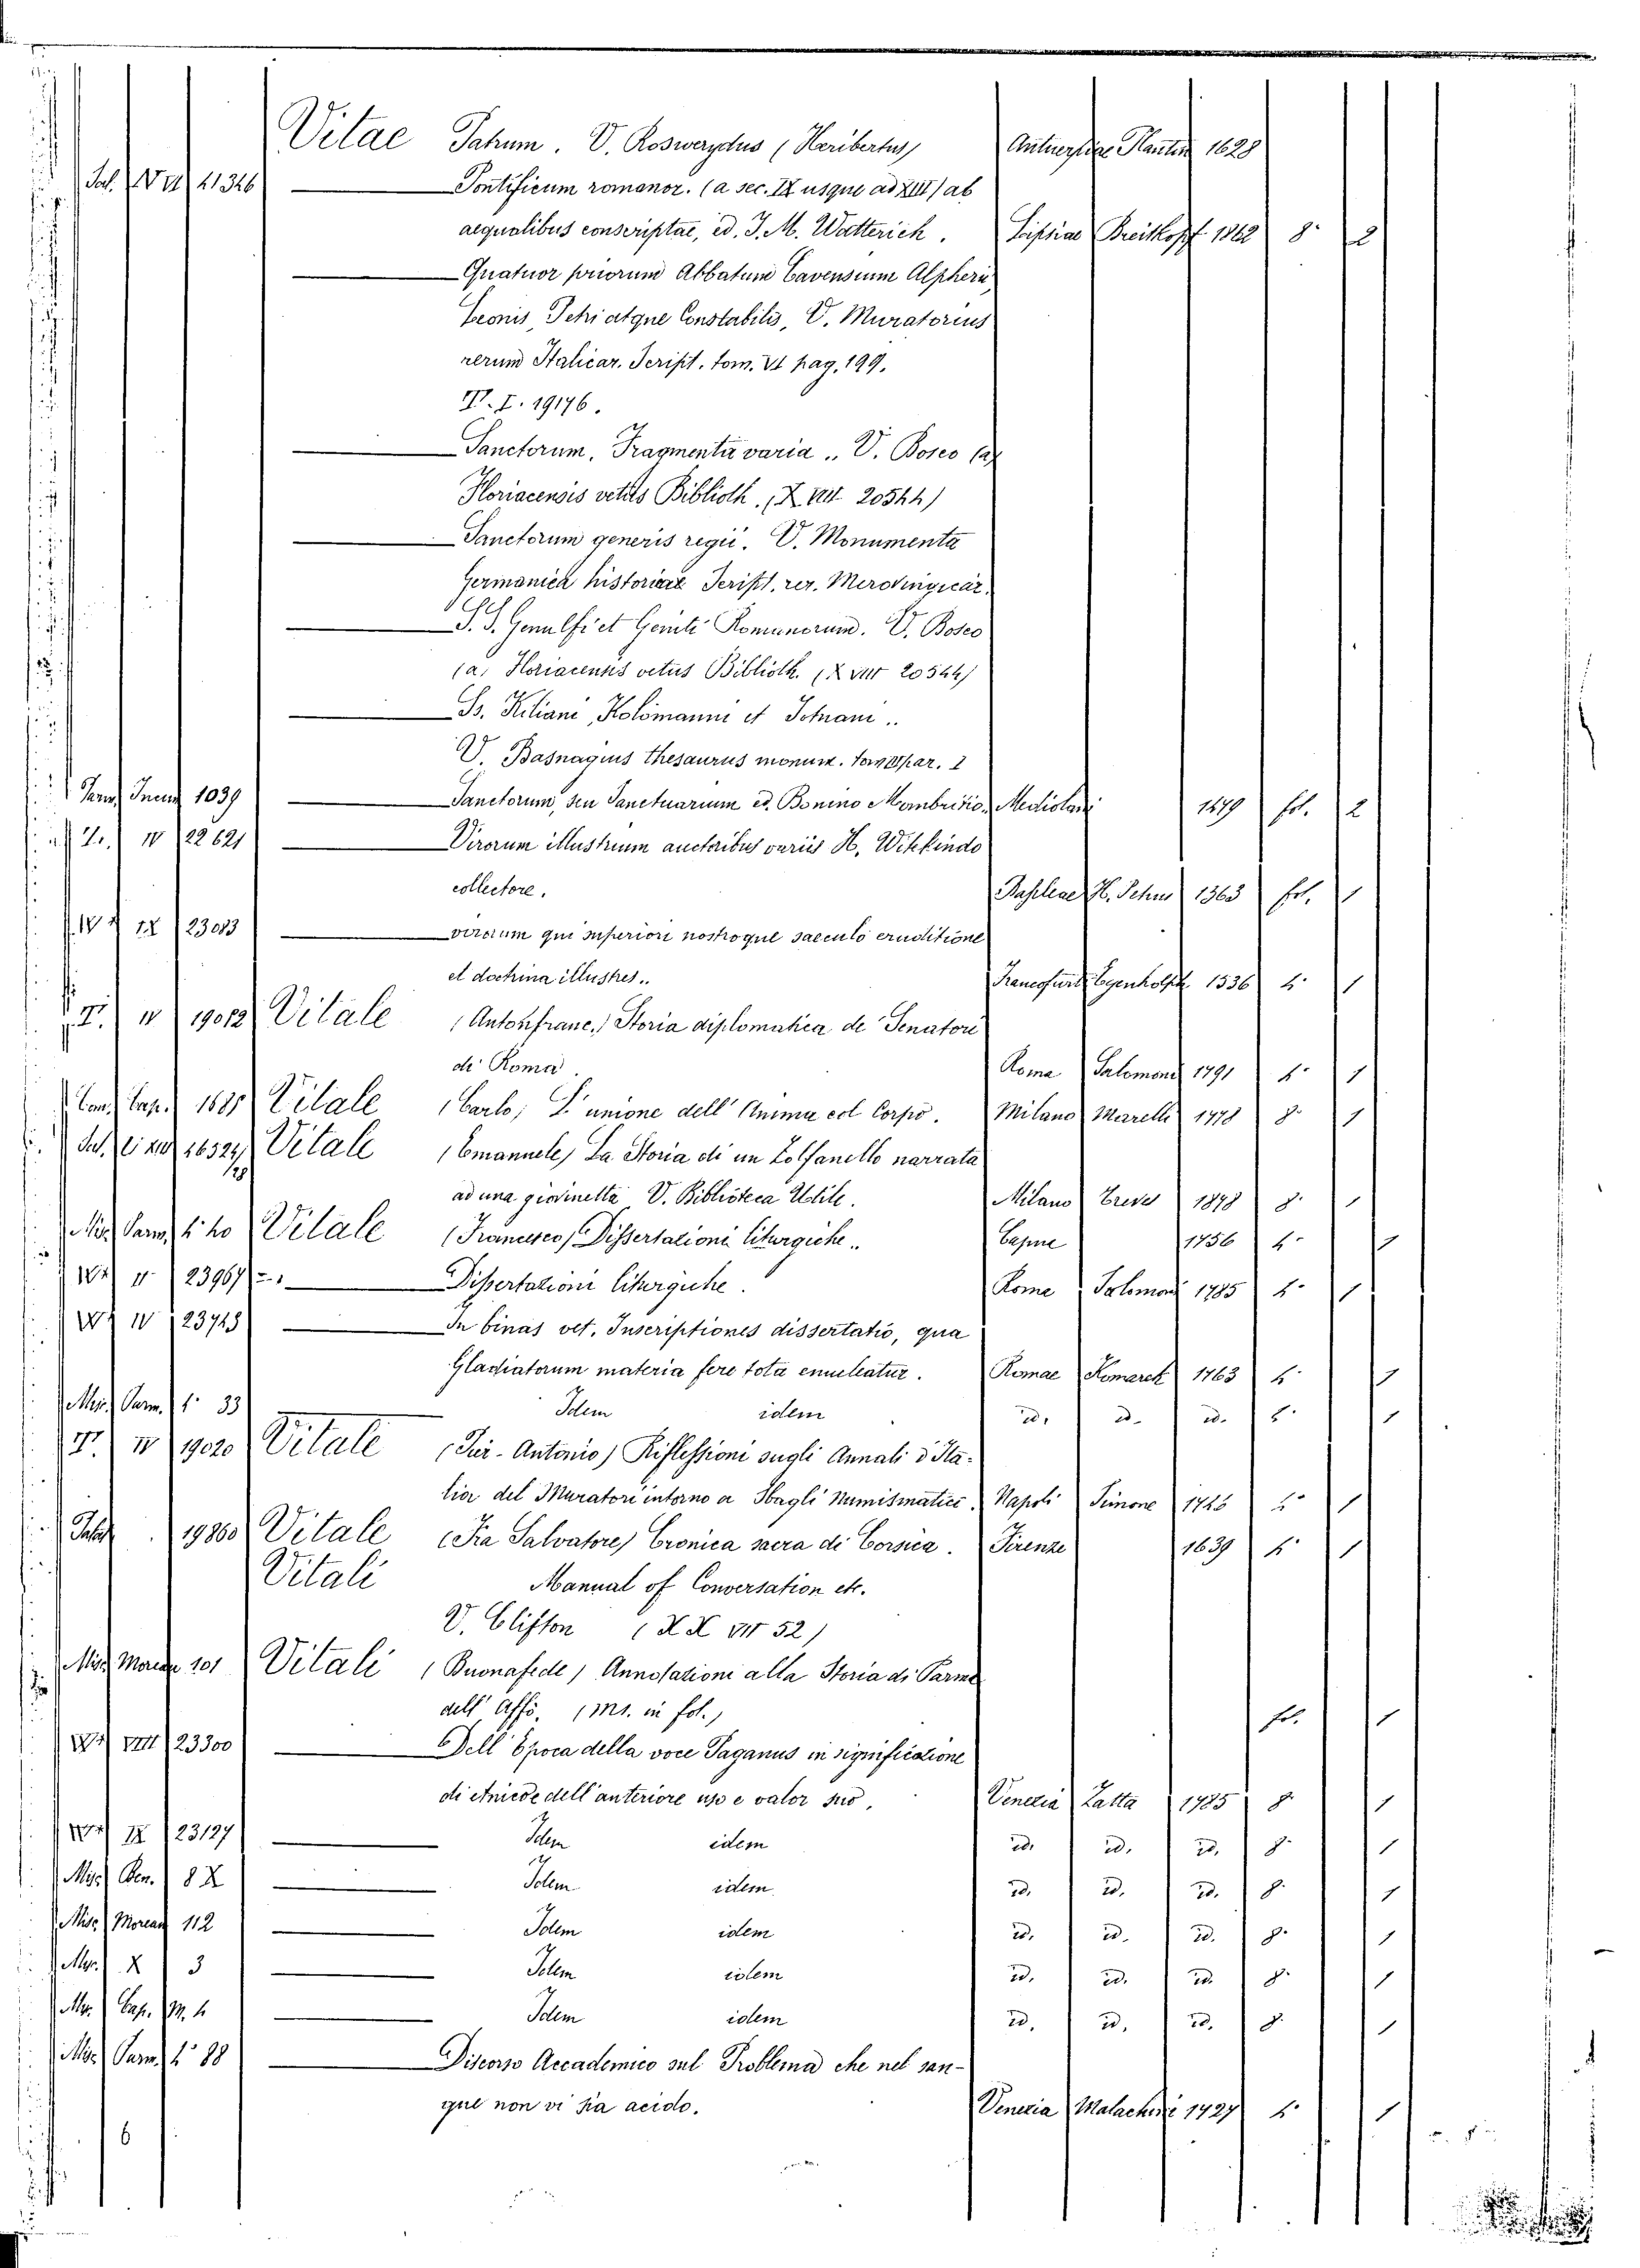 Vitae Patrum. V. Roswerydus (Heribertus) Antuerpiae Plantin 1628
Sal. 21326 Pontificum romanor. (a sec. IX usque ad XIII) ab
aequalibus conscriptae, ed. J. M. Watterich. Lipsiae Breitkopf 1862 8° 2
Quatuor priorum Abbatum Cavensium Alpherii,
Leonis, Petri atque Constabilis, V. Muratorius
rerum Italicar. Script. tom. VI pag. 199.
I. 19176.
Sanctorum, Fragmenta varia. V. Bosco (a)
Floriacensis vetus Biblioth. (X VIII 20544)
Sanctorum generis regii. V. Monumenta
Germanica historica Script. rer. Merovingicar.
S. S. Genulfi et Geniti Romanorum. V. Bosco
(a) Floriacensis vetus Biblioth. (X VIII 20544)
Ss. Kiliani, Kolomanni et Totnani..
V. Basnagius thesaurus monum. par. I
1039 Sanctorum, seu Sanctuarium ed. Bonino Mombritio. Mediolani 1479 fol. 2
IV 22621 Virorum illustrium auctoribus variis H. Witikindo
collectore. Basileae H. Petrus 1563 fol. 1
IX 23083 virorum qui superiori nostroque saeculo eruditione
et doctrina illustres.. Francofurti Egenholph 1536 4° 1
IV 19012 Vitale (Antonfranc.) Storia diplomatica de' Senatori
di Roma. Roma Salomoni 1791 4° 1
1681 Vitale (Carlo) L'unione dell'Anima col Corpo. Milano Marelli 1778 8° 1
Sal. 16524 Vitale (Emanuele) La Storia di un Zolfanello narrata
ad una giovinetta V. Biblioteca Utile. Milano Treves 1878 8° 1
Misc. Parm. 4° 40 Vitale (Francesco) Dissertazioni liturgiche.. 1756 4° 1
23967 Dissertazioni liturgiche. Roma Salomoni 1785 4° 1
IV 23743 In binas vet. Inscriptiones dissertatio, qua
Gladiatorum materia fere tota enucleatur. Romae Komarek 1763 4° 1
Misc. Parm. 4° 33 Idem idem id. id. id. 4° 1
IV 19020 Vitale (Pir-Antonio) Riflessioni sugli Annali d'Ita-
lia del Muratori intorno a Sbagli Numismatici. Napoli Simone 1746 4° 1
19860 Vitale (Fra Salvatore) Cronica sacra di Corsica. Firenze 1639 4° 1
Vitali Manual of Conversation etc.
V. Clifton (XX VII 52)
Misc. Moreau 101 Vitali (Buonafede) Annotazioni alla Storia di Parma
dell'Affò. (Ms. in fol.) fol. 1
VIII 23300 Dell'Epoca della voce Paganus in significazione
di etnico e dell'anteriore uso e valor suo. Venezia Zatta 1785 8° 1
IX 23127 Idem idem id. id. id. 8° 1
Misc. Ben. 8 X Idem idem id. id. id. 8° 1
Misc. Moreau 112 Idem idem id. id. id. 8° 1
Misc. X 3 Idem idem id. id. id. 8° 1
Misc. Cap. M. 4 Idem idem id. id. id. 8° 1
Misc. Parm. 4° 88 Discorso Accademico sul Problema che nel san-
gue non vi sia acido. Venezia Malachini 1727 4° 1
6